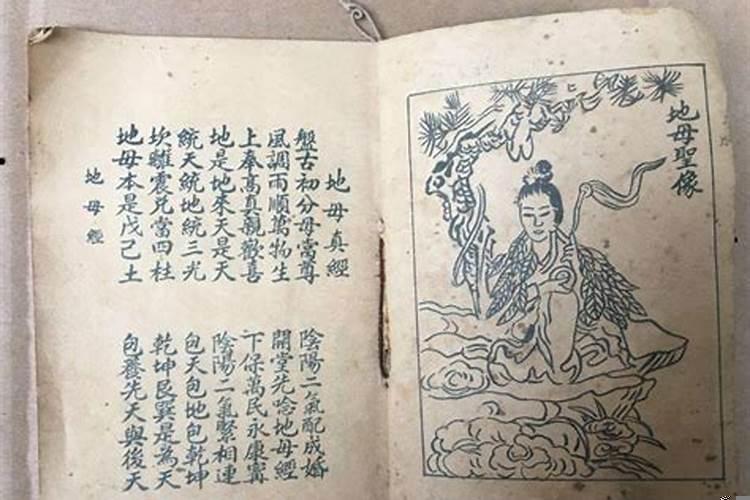 地母聖像
地母真經
盤古初分母當尊
陰陽二氣配成婚
風調雨順萬物生
開堂先唸地母經
上奉高真親歡喜
下保萬民永康寧
地是地來天是天
陰陽二氣緊相連
統天統地統三光
包天包地包乾坤
坎離震兌當四柱
乾坤艮巽是為天
地母本是戊己土
包養先天與後天
地母經